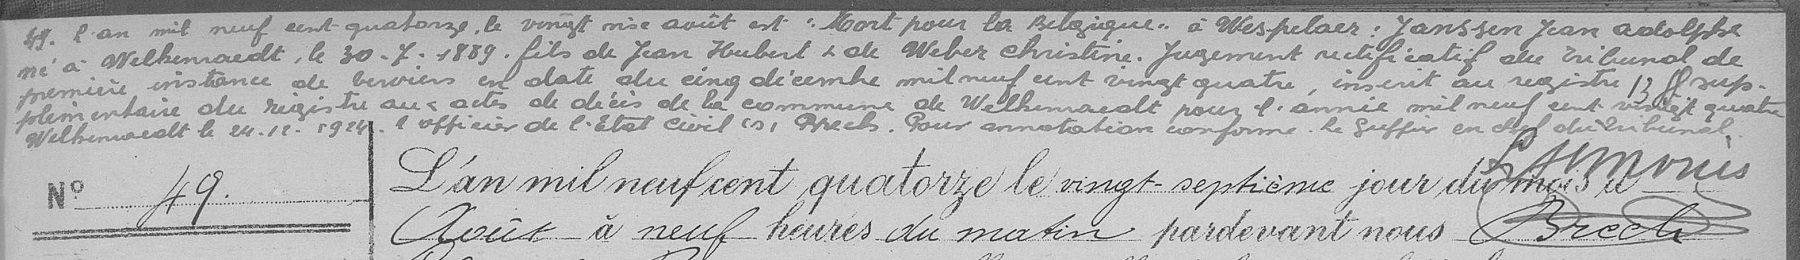 49. L'an mil neuf cent quatorze, le vingt six août est "Mort pour la Belgique" à Wespelaer : Janssen Jean Adolphe
né à Welkenraedt, le 30.7.1889. fils de Jean Hubert & de Weber Christine. Jugement rectificatif du Tribunal de
première instance de Verviers en date du cinq décembre mil neuf cent vingt quatre, inscrit au registre 13 sup-
plémentaire du registre aux actes de décès de la commune de Welkenraedt pour l'année mil neuf cent vingt quatre
Welkenraedt le 24.12.1924. l'officier de l'Etat Civil (s) Brech. Pour annotation conforme. Le Greffier en chef du Tribunal.
N° 49.
L'an mil neuf cent quatorze le vingt-septième jour du mois d
Août à neuf heures du matin pardevant nous Brech